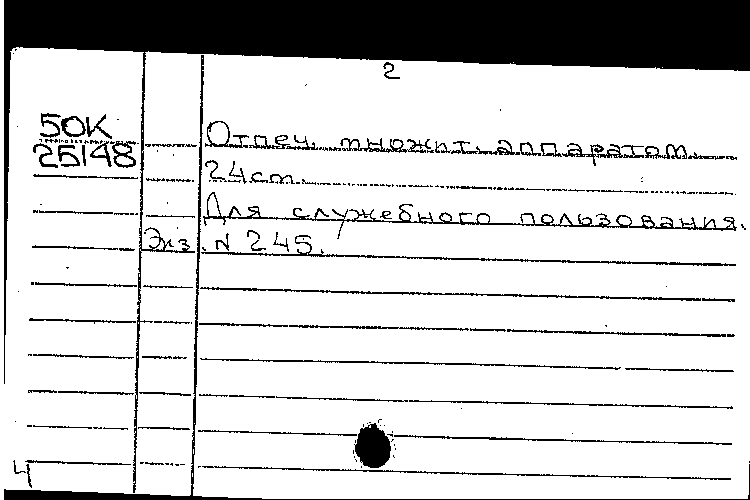 2
50К
25148
Отпеч. множит. аппаратом.
24 cm.
Для служебного пользования.
Экз. N 245.
4